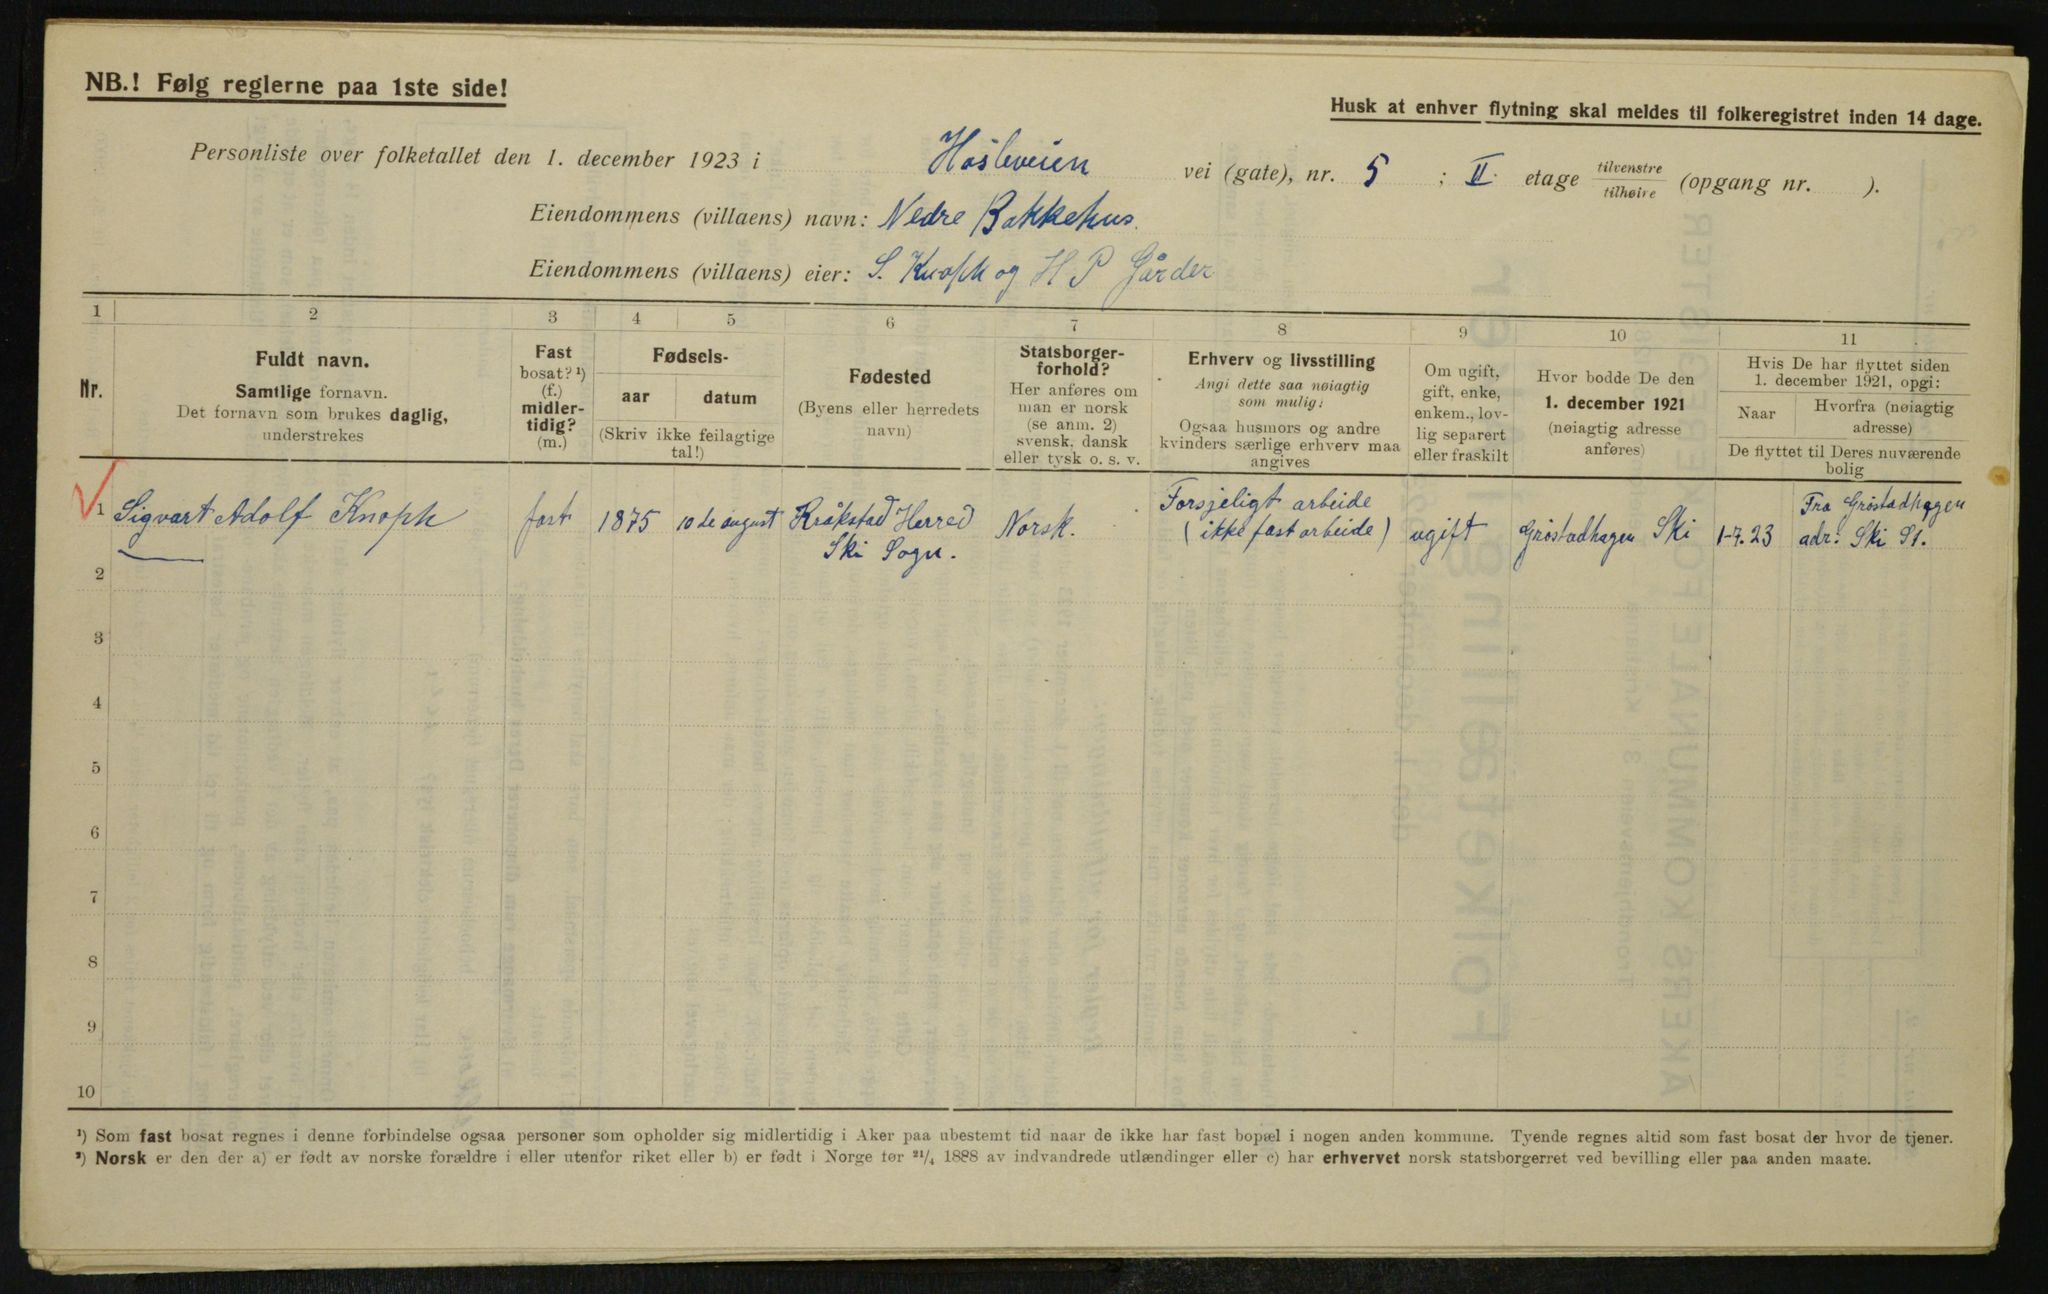 NB.! Følg reglerne paa 1ste side!
Husk at enhver flytning skal meldes til folkeregistret inden 14 dage.
Personliste over folketallet den 1. december 1923 i Hasleveien vei (gate), nr. 5 ; II. etage tilvenstre tilhøire (opgang nr. ).
Eiendommens (villaens) navn: Nedre Bakkehus.
Eiendommens (villaens) eier: S. Knoph og H P Gårder
1 2 3 4 5 6 7 8 9 10 11
Nr.
Fuldt navn.
Samtlige fornavn.
Det fornavn som brukes daglig,
understrekes
Fast
bosat? ¹)
(f.)
midler-
tidig?
(m.)
Fødsels-
aar datum
(Skriv ikke feilagtige
tal!)
Fødested
(Byens eller herredets
navn)
Statsborger-
forhold?
Her anføres om
man er norsk
(se anm. 2)
svensk, dansk
eller tysk o. s. v.
Erhverv og livsstilling
Angi dette saa nøiagtig
som mulig:
Ogsaa husmors og andre
kvinders særlige erhverv maa
angives
Om ugift,
gift, enke,
enkem., lov-
lig separert
eller fraskilt
Hvor bodde De den
1. december 1921
(nøiagtig adresse
anføres)
Hvis De har flyttet siden
1. december 1921, opgi:
Naar
Hvorfra (nøiagtig
adresse)
De flyttet til Deres nuværende
bolig
1 Sigvart Adolf Knoph fast 1875 10 de august Kråkstad Herred Norsk. Forsjeligt arbeide ugift Grøstadhagen Ski 1-7. 23 Fra Grøstadhagen
Ski Sogn. (ikke fast arbeide) adr. Ski St.
2
3
4
5
6
7
8
9
10
¹) Som fast bosat regnes i denne forbindelse ogsaa personer som opholder sig midlertidig i Aker paa ubestemt tid naar de ikke har fast bopæl i nogen anden kommune. Tyende regnes altid som fast bosat der hvor de tjener.
²) Norsk er den der a) er født av norske forældre i eller utenfor riket eller b) er født i Norge før 21/4 1888 av indvandrede utlændinger eller c) har erhvervet norsk statsborgerret ved bevilling eller paa anden maate.